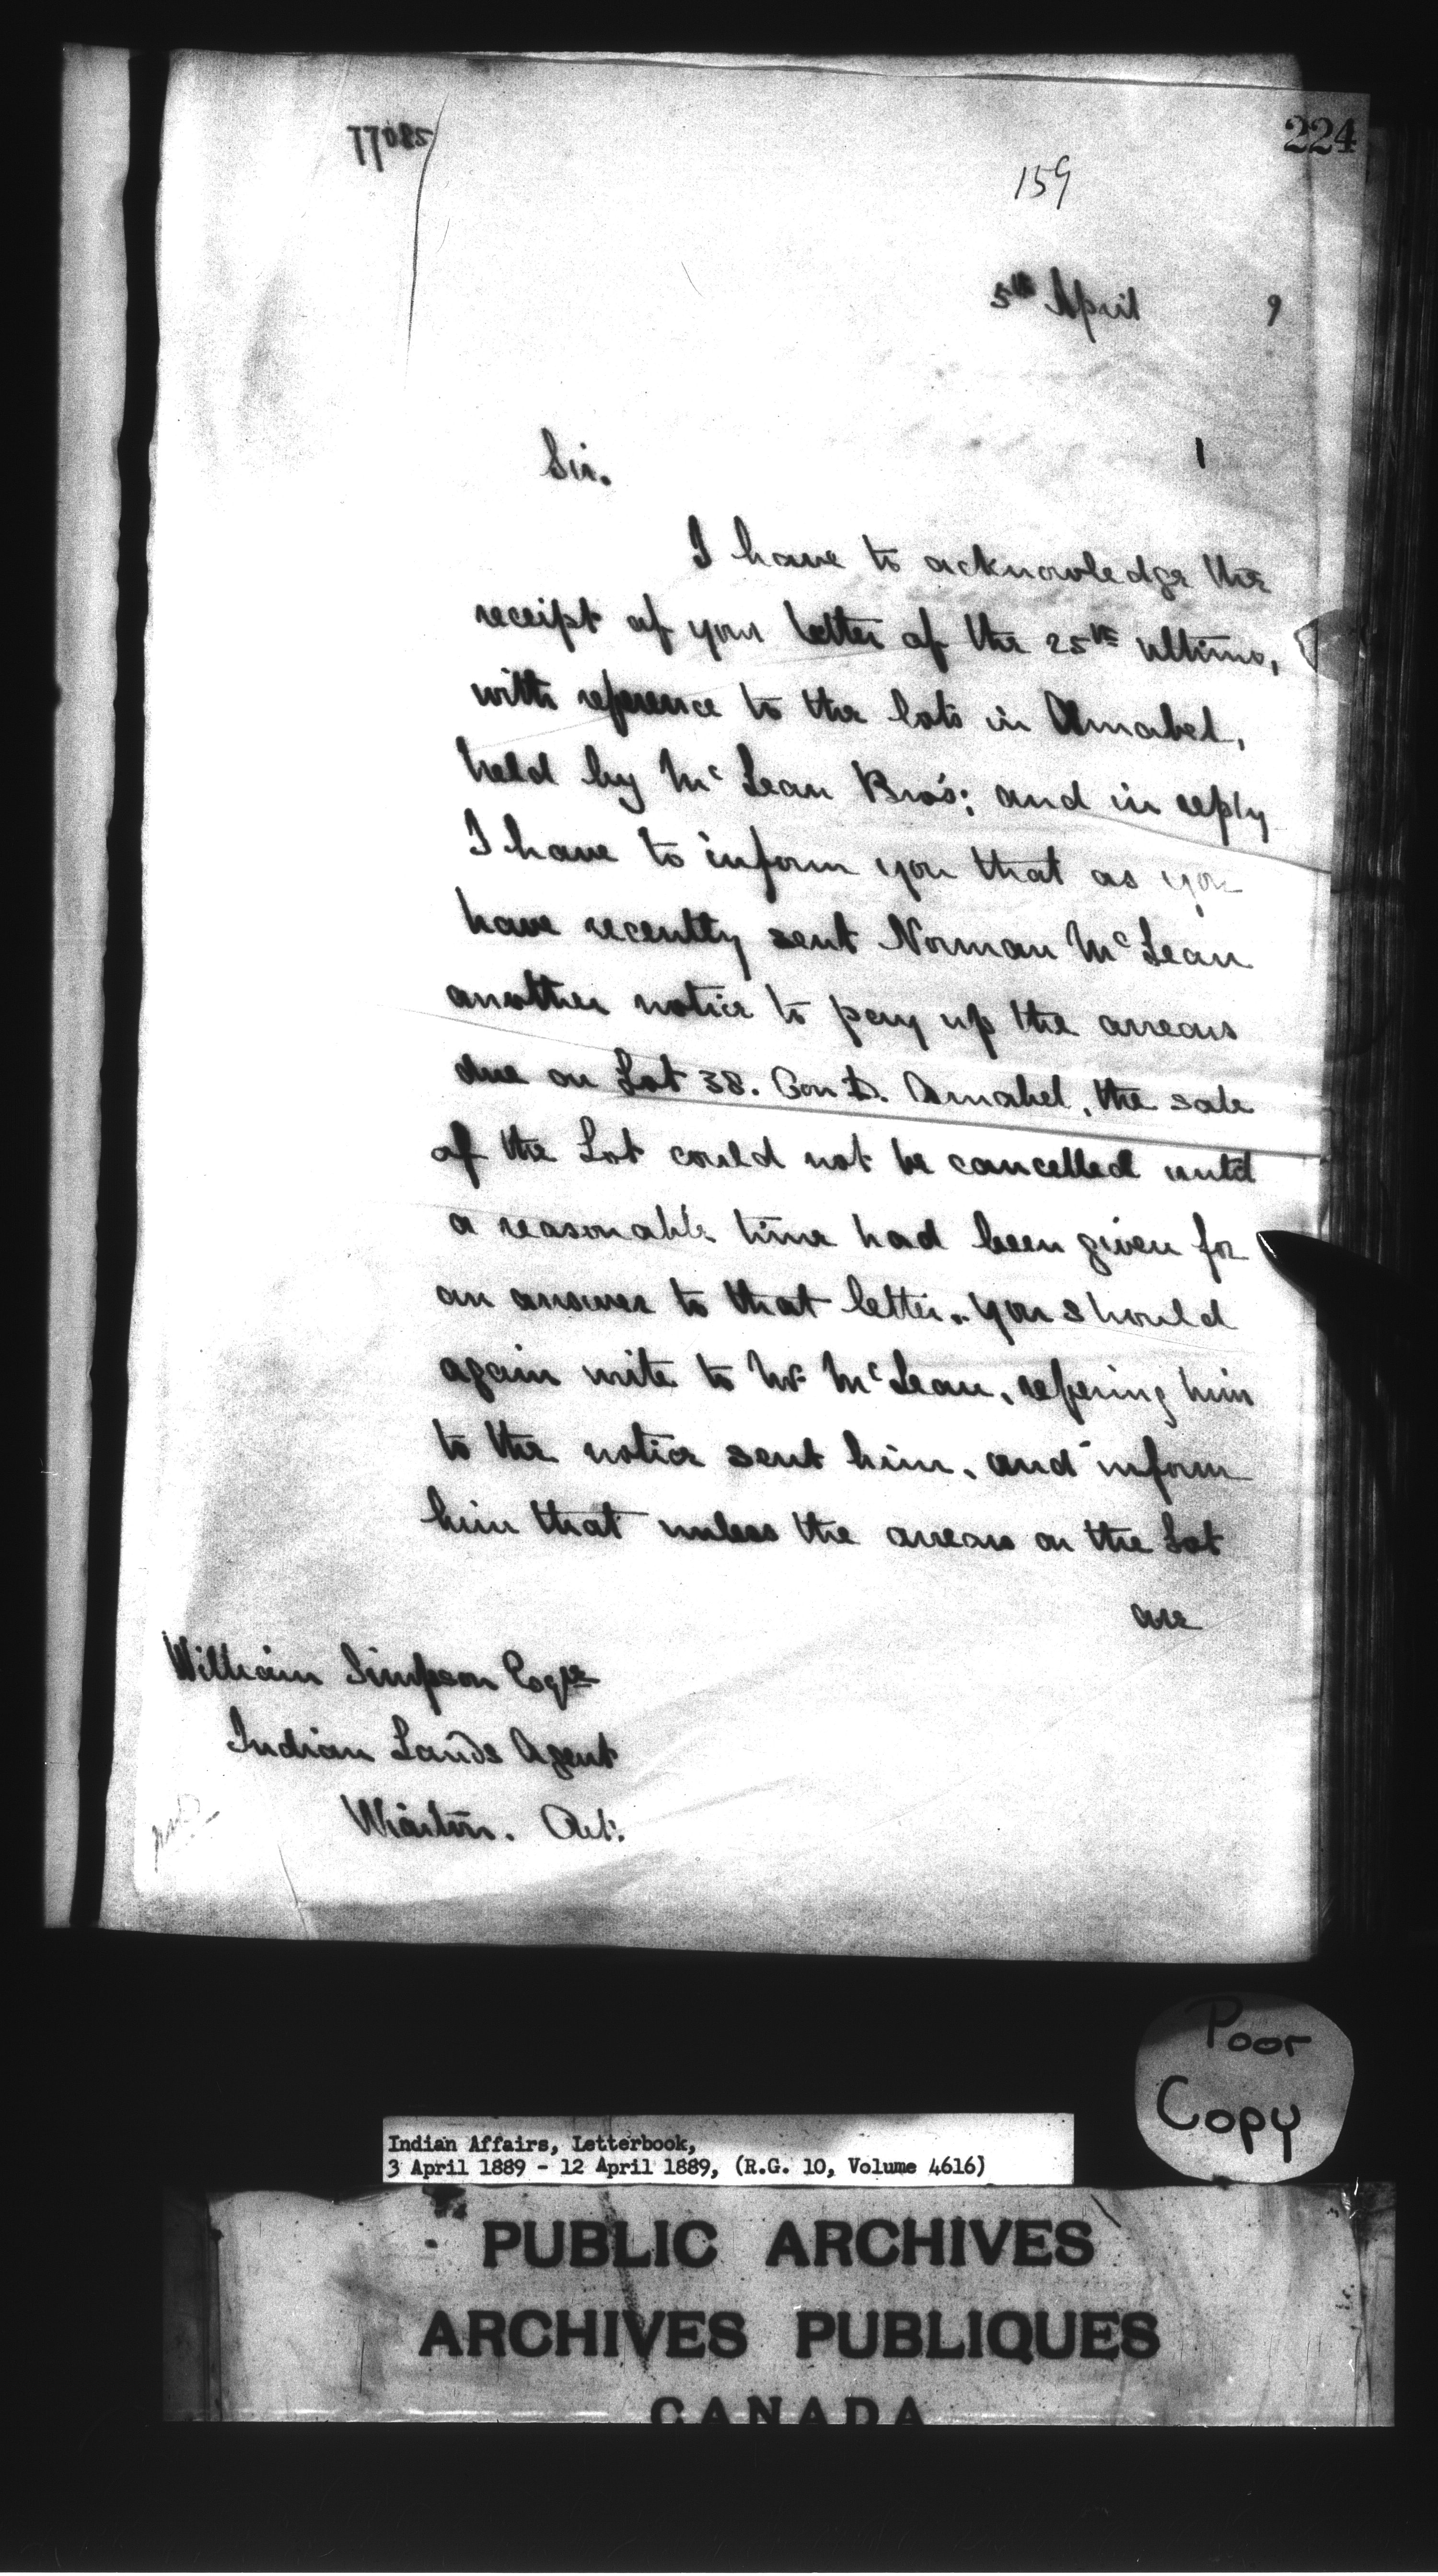 77085
224
159
5th April 9
Sir.
I have to acknowledge the
receipt of your letter of the 25th ultimo,
with reference to the lots in Amabel,
held by McLean Bros; and in reply
I have to inform you that as you
have recently sent Norman McLean
another notice to pay up the arrears
due on Lot 38. Con D. Amabel, the sale
of the Lot could not be cancelled until
a reasonable time had been given for
an answer to that letter. You should
again write to Mr McLean, refering him
to the notice sent him, and inform
him that unless the arrears on the Lot
are
William Simpson Esqre
Indian Lands Agent
Wiarton. Ont:
Poor
Copy
Indian Affairs, Letterbook,
3 April 1889 - 12 April 1889, (R.G. 10, Volume 4616)
PUBLIC ARCHIVES
ARCHIVES PUBLIQUES
CANADA